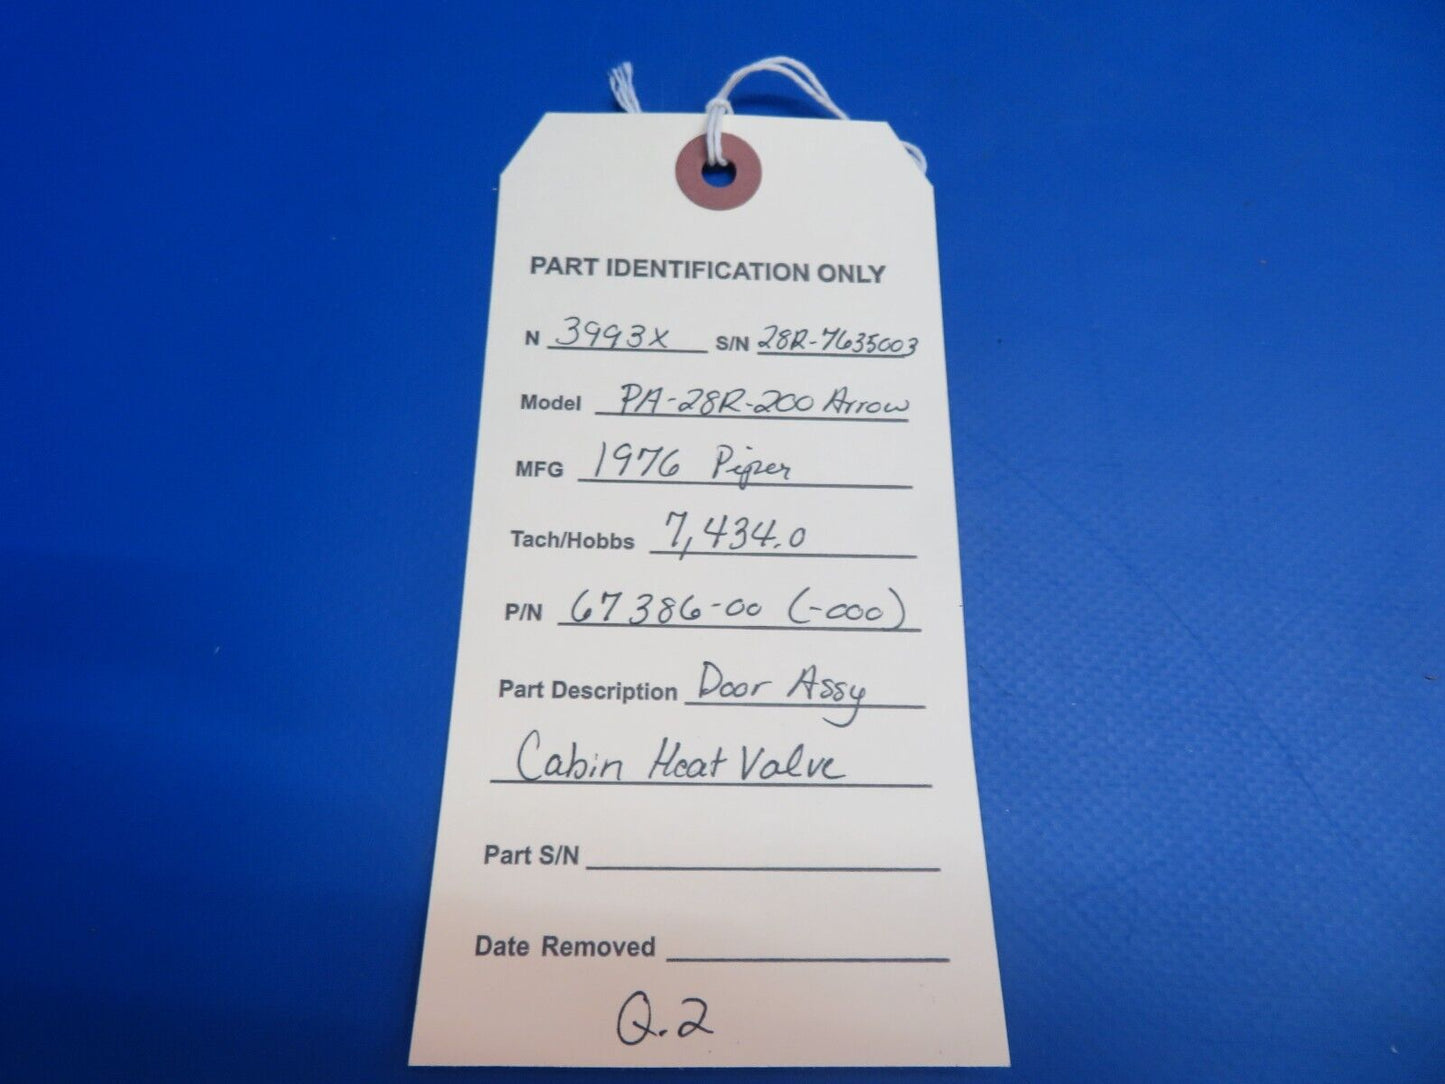 PART IDENTIFICATION ONLY
N 3993X S/N 28R-7635003
Model PA-28R-200 Arrow
MFG 1976 Piper
Tach/Hobbs 7,434.0
P/N 67386-00 (-000)
Part Description Door Assy
Cabin Heat Valve
Part S/N
Date Removed
Q.2